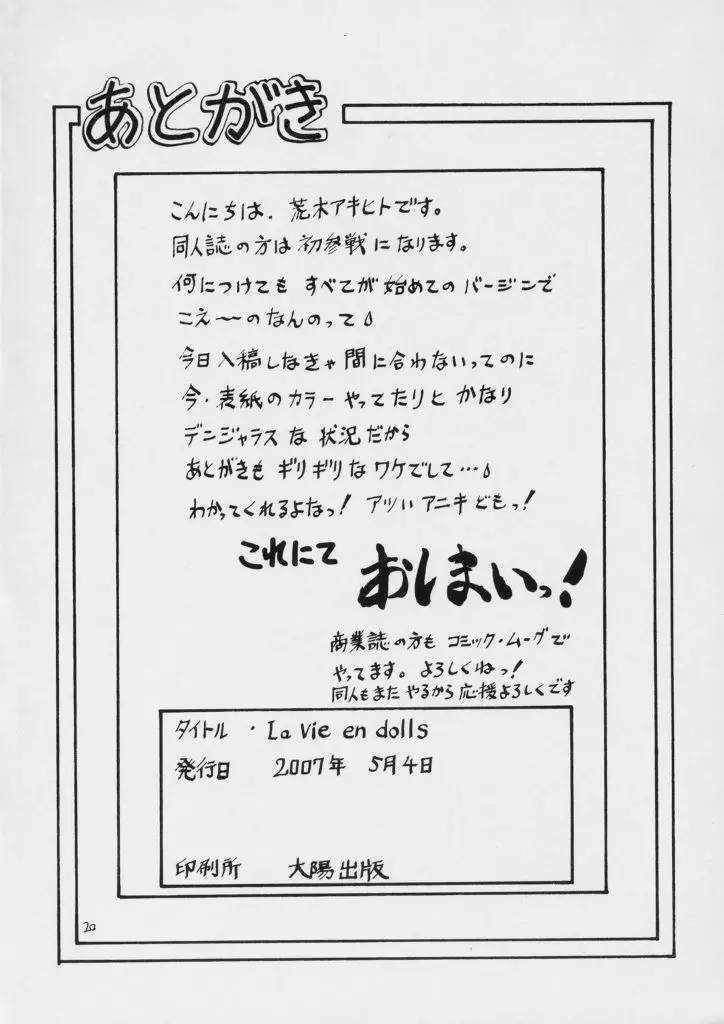 あとがき
こんにちは、荒木アキヒトです。
同人誌の方は初参戦になります。
何につけても すべてが始めてのバージンで
こえ〜〜のなんのって
今日入稿しなきゃ間に合わないってのに
今・表紙のカラーやってたりと かなり
デンジャラスな状況だから
あとがきも ギリギリなワケでして…
わかってくれるよなっ! アツいアニキどもっ!
これにて
おしまいっ!
商業誌の方も コミック・ムーグで
やってます。よろしくねっ!
同人もまたやるから応援よろしくです
タイトル ・ La vie en dolls
発行日 2007年 5月4日
印刷所 大陽出版
20